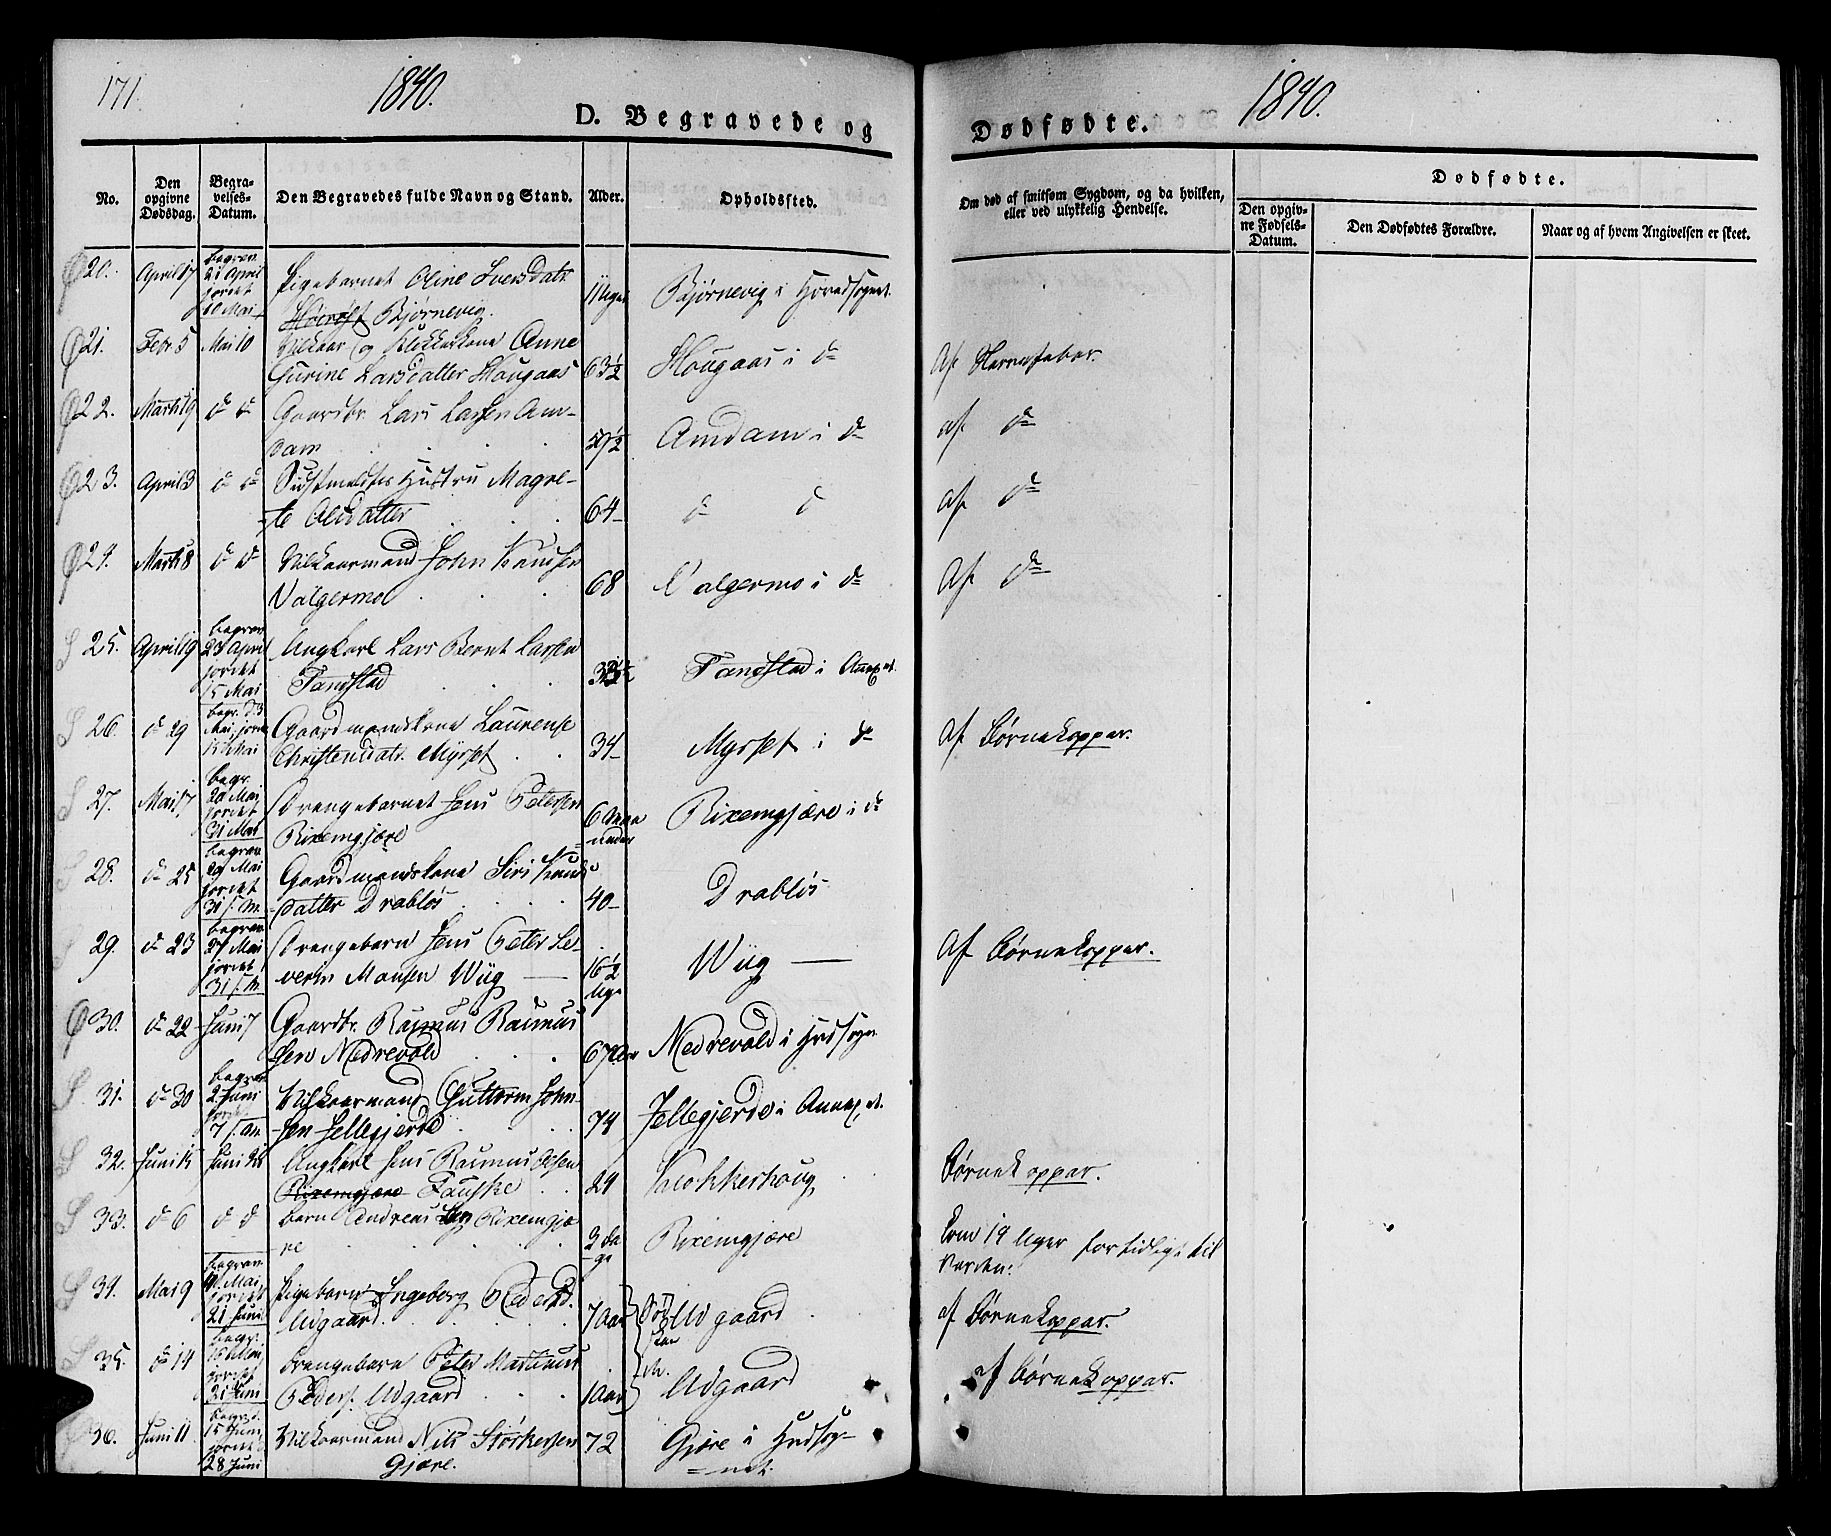 171.
1840.
1840.
D. Begravede og
Dødfødte.
No.
Den opgivne Dødsdag.
Begravelses-Datum.
Den Begravedes fulde Navn og Stand.
Alder.
Opholdssted.
Om død af smitsom Sygdom, og da hvilken, eller ved ulykkelig Hendelse.
Dødfødte.
Den opgivne Fødsels-Datum.
Den Dødfødtes Forældre.
Naar og af hvem Angivelsen er skeet.
20. April 17 begrav. 21 April jordet 10 Mai Pigebarnet Oline Iversdatr. 11 Uger Bjørnevig i Hovedsognet.
Bjørnevig.
21. Febr 5 Mai 10 Vilkaar og Klokkerkone Anne
Gurine Larsdatter Hougaas 63½ Hougaas i do Af Nervefeber.
22. Marts 19 do do Gaardbr. Lars Larsen Am-
dam 59½ Amdam i do af do
23. April 3 do do Hustru Magre-
te Olsdatter 64 do do af do
24. Marts 8 do do Vilkaarmand John Knudsen
Valgermo 68 Valgermo i do af do
25. April 19 begrav 23 April jordet 15 Mai Ungkarl Lars Bernt Larsen
Tandstad Tandstad i Annexet.
26. do 29 begr. d 3 Mai, jord. 15 Mai Gaardmandskone Laurense
Christensdatr. Myrset 34 Myrset i do Af Børnekopper.
27. Mai 17 begr. 20 Mai jordet 31 Mai Drengebarnet Jens Petersen
Rixemgjære 6 Rixemgjære i do
28. do 25 begrav 29 Mai jordet 31 s. M. Gaardmandskone Siri Knuds-
datter Drabløs 40 Drabløs
29. do 23 begrav 27 Mai jordet 31 s. M. Drengebarn Jens Peter Se-
verin Monsen Wiig 16½ Uge Wiig Af Børnekopper.
30. do 22 Juni 7 Gaardbr. Rasmus Rasmus
sen Nedrevold 67 Nedrevold i Hvdsogn.
31. do 30 begrav 2 Juni jordet 7 s. M. Vilkaarmand Guttorm John-
sen Jellegjerde 74 Jellegjerde i Annexet.
32. Juni 15 Juni Ungkarl Jens Rasmus Olsen
Rixemgjære Fauske 24 Klokkerhoug Børnekopper.
33. do 6 do do barn Andreas Rixemgjæ
re 3 Dage Rixemgjære kom 14 Uger fortidligt til
Verden.
34. Mai 9 begrav. Mai, jordet 21 Juni Pigebarn Ingeborg Pedersd.
Udgaard. 7 Aar Udgaard af Børnekopper.
Sødskende.
35. do 14 begr. 18 Mai jordet 21 Juni Drengebarn Peter Martinus
Peders. Udgaard 1 Aar Udgaard af Børnekopper.
36. Juni 11 begr. d. 15 Juni, jordet 28 Juni Vilkaarmand Nils Størkersen 72 Gjøre i Hvdsog-
Gjære. net.